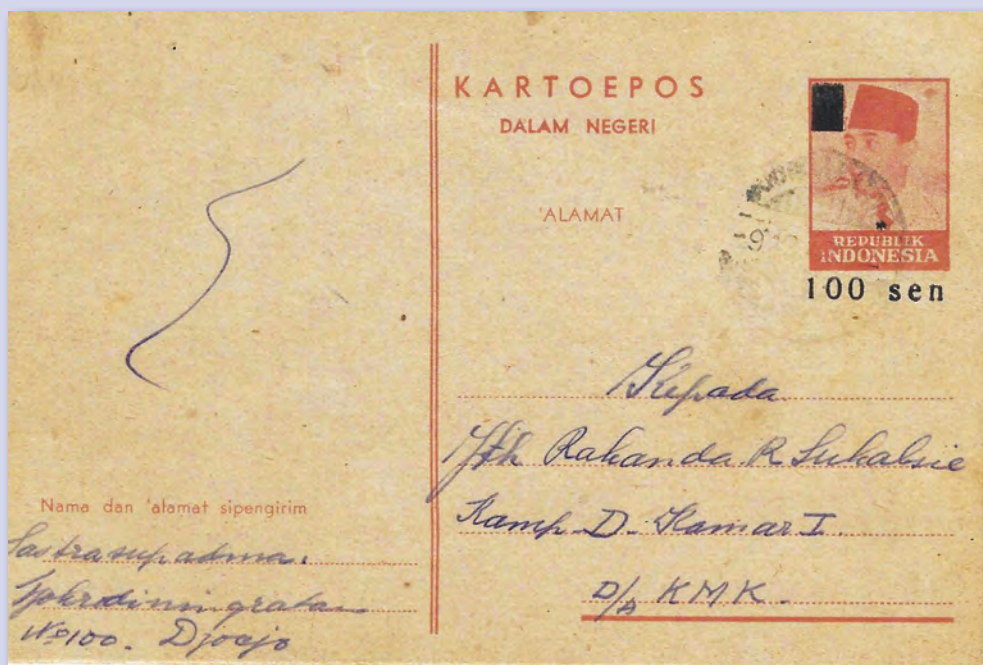 KARTOEPOS
DALAM NEGERI
'ALAMAT
REPUBLIK
INDONESIA
100 sen
Kepada
Yth Rakanda R
Kamp. D. Kamar I.
D/A KMK.
Nama dan 'alamat sipengirim
Sastrasupadma.
Nº100. Djocjo